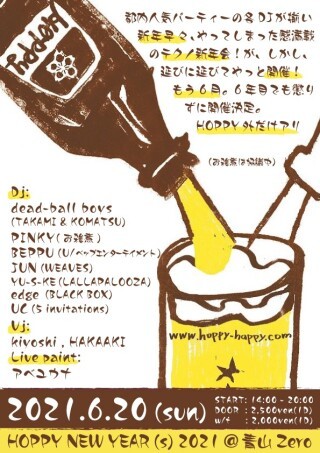 HOPPY
都内人気パーティーの各DJが揃い
新年早々、やってしまった感満載
のテクノ新年会！が、しかし、
延びに延びてやっと開催！
もう6月。6年目でも懲り
ずに開催決定。
HOPPY外だけアリ
（お雑煮は協議中）
Dj:
dead-ball boys
(TAKAMI & KOMATSU)
PINKY(お雑煮)
BEPPU(U/ベップエンターテイメント)
JUN(WEAVES)
YU-S-KE(LALLAPALOOZA)
edge(BLACK BOX)
UC(5 invitations)
Vj:
kiyoshi , HAKAAKI
Live paint:
アベユウナ
www.hoppy-happy.com
2021.6.20(sun)
START: 14:00 - 20:00
DOOR : 2,500yen(1D)
w/f : 2,000yen(1D)
HOPPY NEW YEAR(s) 2021 @青山Zero